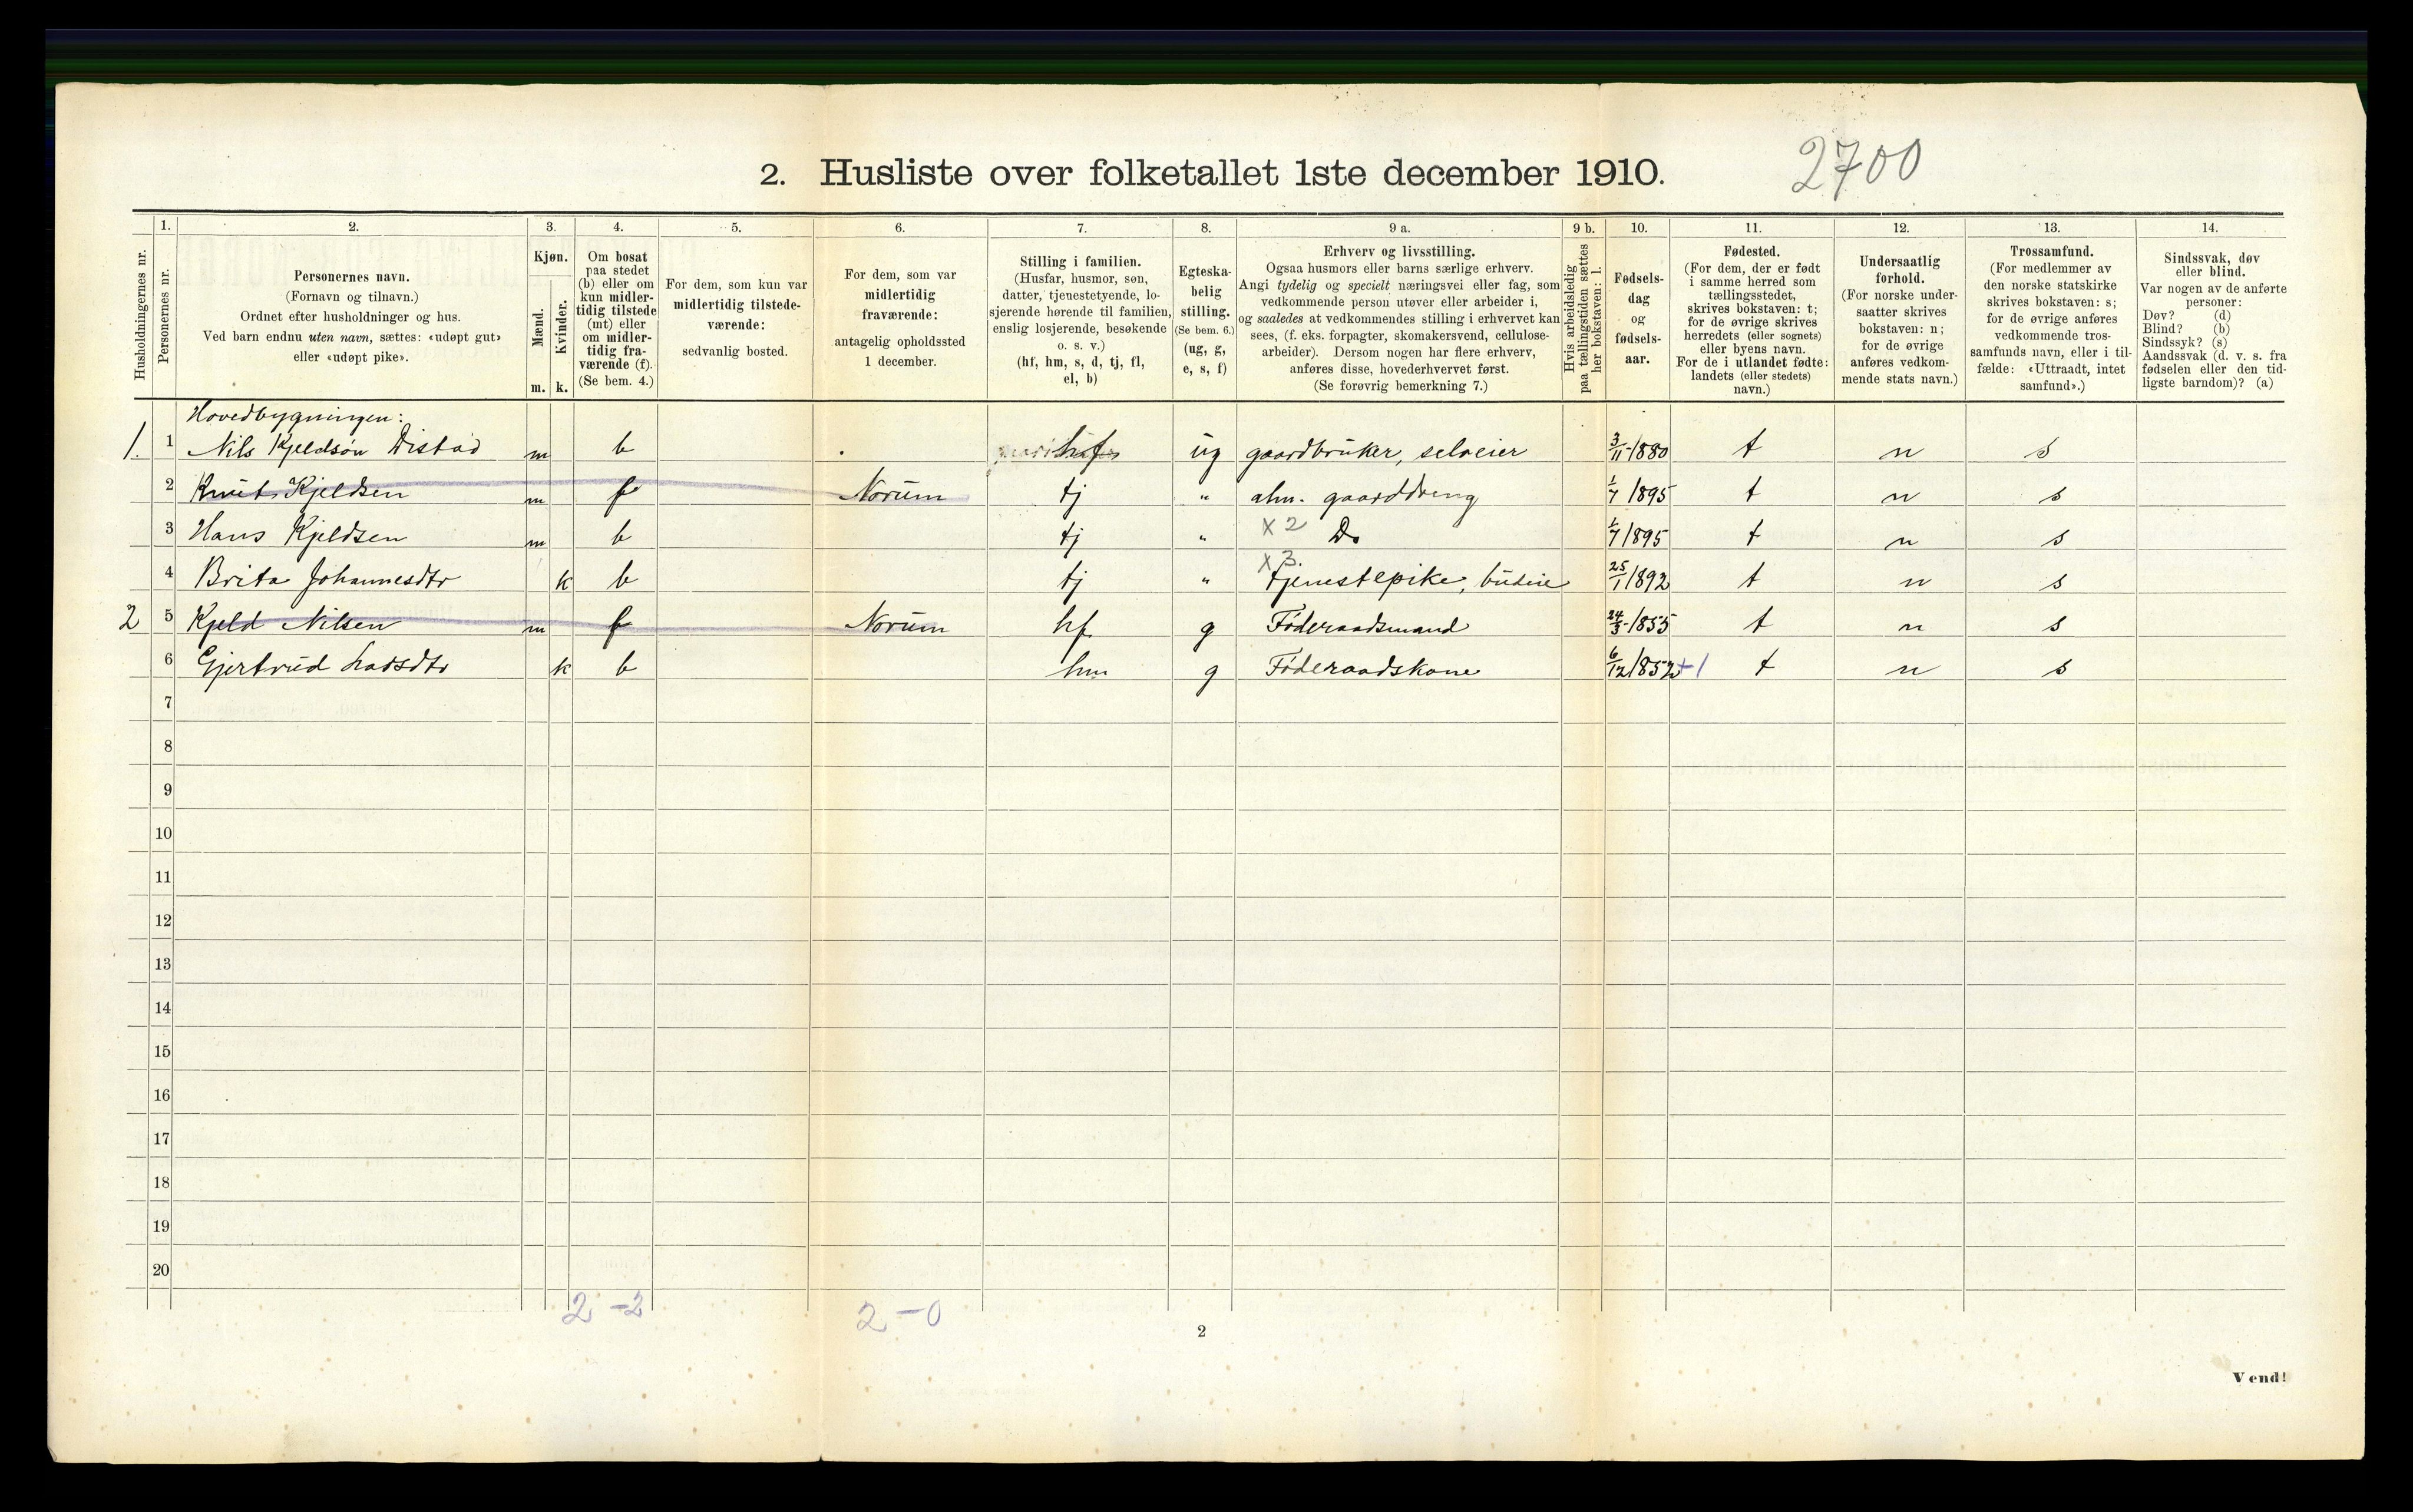 2700
2. Husliste over folketallet 1ste december 1910.
Husholdningernes nr.
1.
Personernes nr.
2.
Personernes navn.
(Fornavn og tilnavn.)
Ordnet efter husholdninger og hus.
Ved barn endnu uten navn, sættes: «udøpt gut»
eller «udøpt pike».
3.
Kjøn.
Mænd.
Kvinder.
m. k.
4.
Om bosat
paa stedet
(b) eller om
kun midler-
tidig tilstede
(mt) eller
om midler-
tidig fra-
værende (f).
(Se bem. 4.)
5.
For dem, som kun var
midlertidig tilstede-
værende:
sedvanlig bosted.
6.
For dem, som var
midlertidig
fraværende:
antagelig opholdssted
1 december.
7.
Stilling i familien.
(Husfar, husmor, søn,
datter, tjenestetyende, lo-
sjerende hørende til familien,
enslig losjerende, besøkende
o. s. v.)
(hf, hm, s, d, tj, fl,
el, b)
8.
Egteska-
belig
stilling.
(Se bem. 6.)
(ug, g,
e, s, f)
9 a.
Erhverv og livsstilling.
Ogsaa husmors eller barns særlige erhverv.
Angi tydelig og specielt næringsvei eller fag, som
vedkommende person utøver eller arbeider i,
og saaledes at vedkommendes stilling i erhvervet kan
sees, (f. eks. forpagter, skomakersvend, cellulose-
arbeider). Dersom nogen har flere erhverv,
anføres disse, hovederhvervet først.
(Se forøvrig bemerkning 7.)
9 b.
Hvis arbeidsledig
paa tællingstiden sættes
her bokstaven: l.
10.
Fødsels-
dag
og
fødsels-
aar.
11.
Fødested.
(For dem, der er født
i samme herred som
tællingsstedet,
skrives bokstaven: t;
for de øvrige skrives
herredets (eller sognets)
eller byens navn.
For de i utlandet fødte:
landets (eller stedets)
navn.)
12.
Undersaatlig
forhold.
(For norske under-
saatter skrives
bokstaven: n;
for de øvrige
anføres vedkom-
mende stats navn.)
13.
Trossamfund.
(For medlemmer av
den norske statskirke
skrives bokstaven: s;
for de øvrige anføres
vedkommende tros-
samfunds navn, eller i til-
fælde: «Uttraadt, intet
samfund».)
14.
Sindssvak, døv
eller blind.
Var nogen av de anførte
personer:
Døv? (d)
Blind? (b)
Sindssyk? (s)
Aandssvak (d. v. s. fra
fødselen eller den tid-
ligste barndom)? (a)
Hovedbygningen:
1. 1 Nils Kjeldsøn Distad m b hf ug gaardbruker, selveier 3/11-1880 t n s
2 Knut Kjeldsen m f Norum tj " alm. gaarddreng 1/7 1895 t n s
3 Hans Kjeldsen m b tj " x 2 Do 1/7 1895 t n s
4 Brita Johannesdtr k b tj " x 3. tjenestepike, budeie 25/1 1892 t n s
2 5 Kjeld Nilsen m f Norum hf g Føderaadsmand 24/3-1855 t n s
6 Gjertrud Larsdtr k b hm g Føderaadskone 6/12 1852 +1 t n s
7
8
9
10
11
12
13
14
15
16
17
18
19
20
2 - 2 2 - 0
2
Vend!